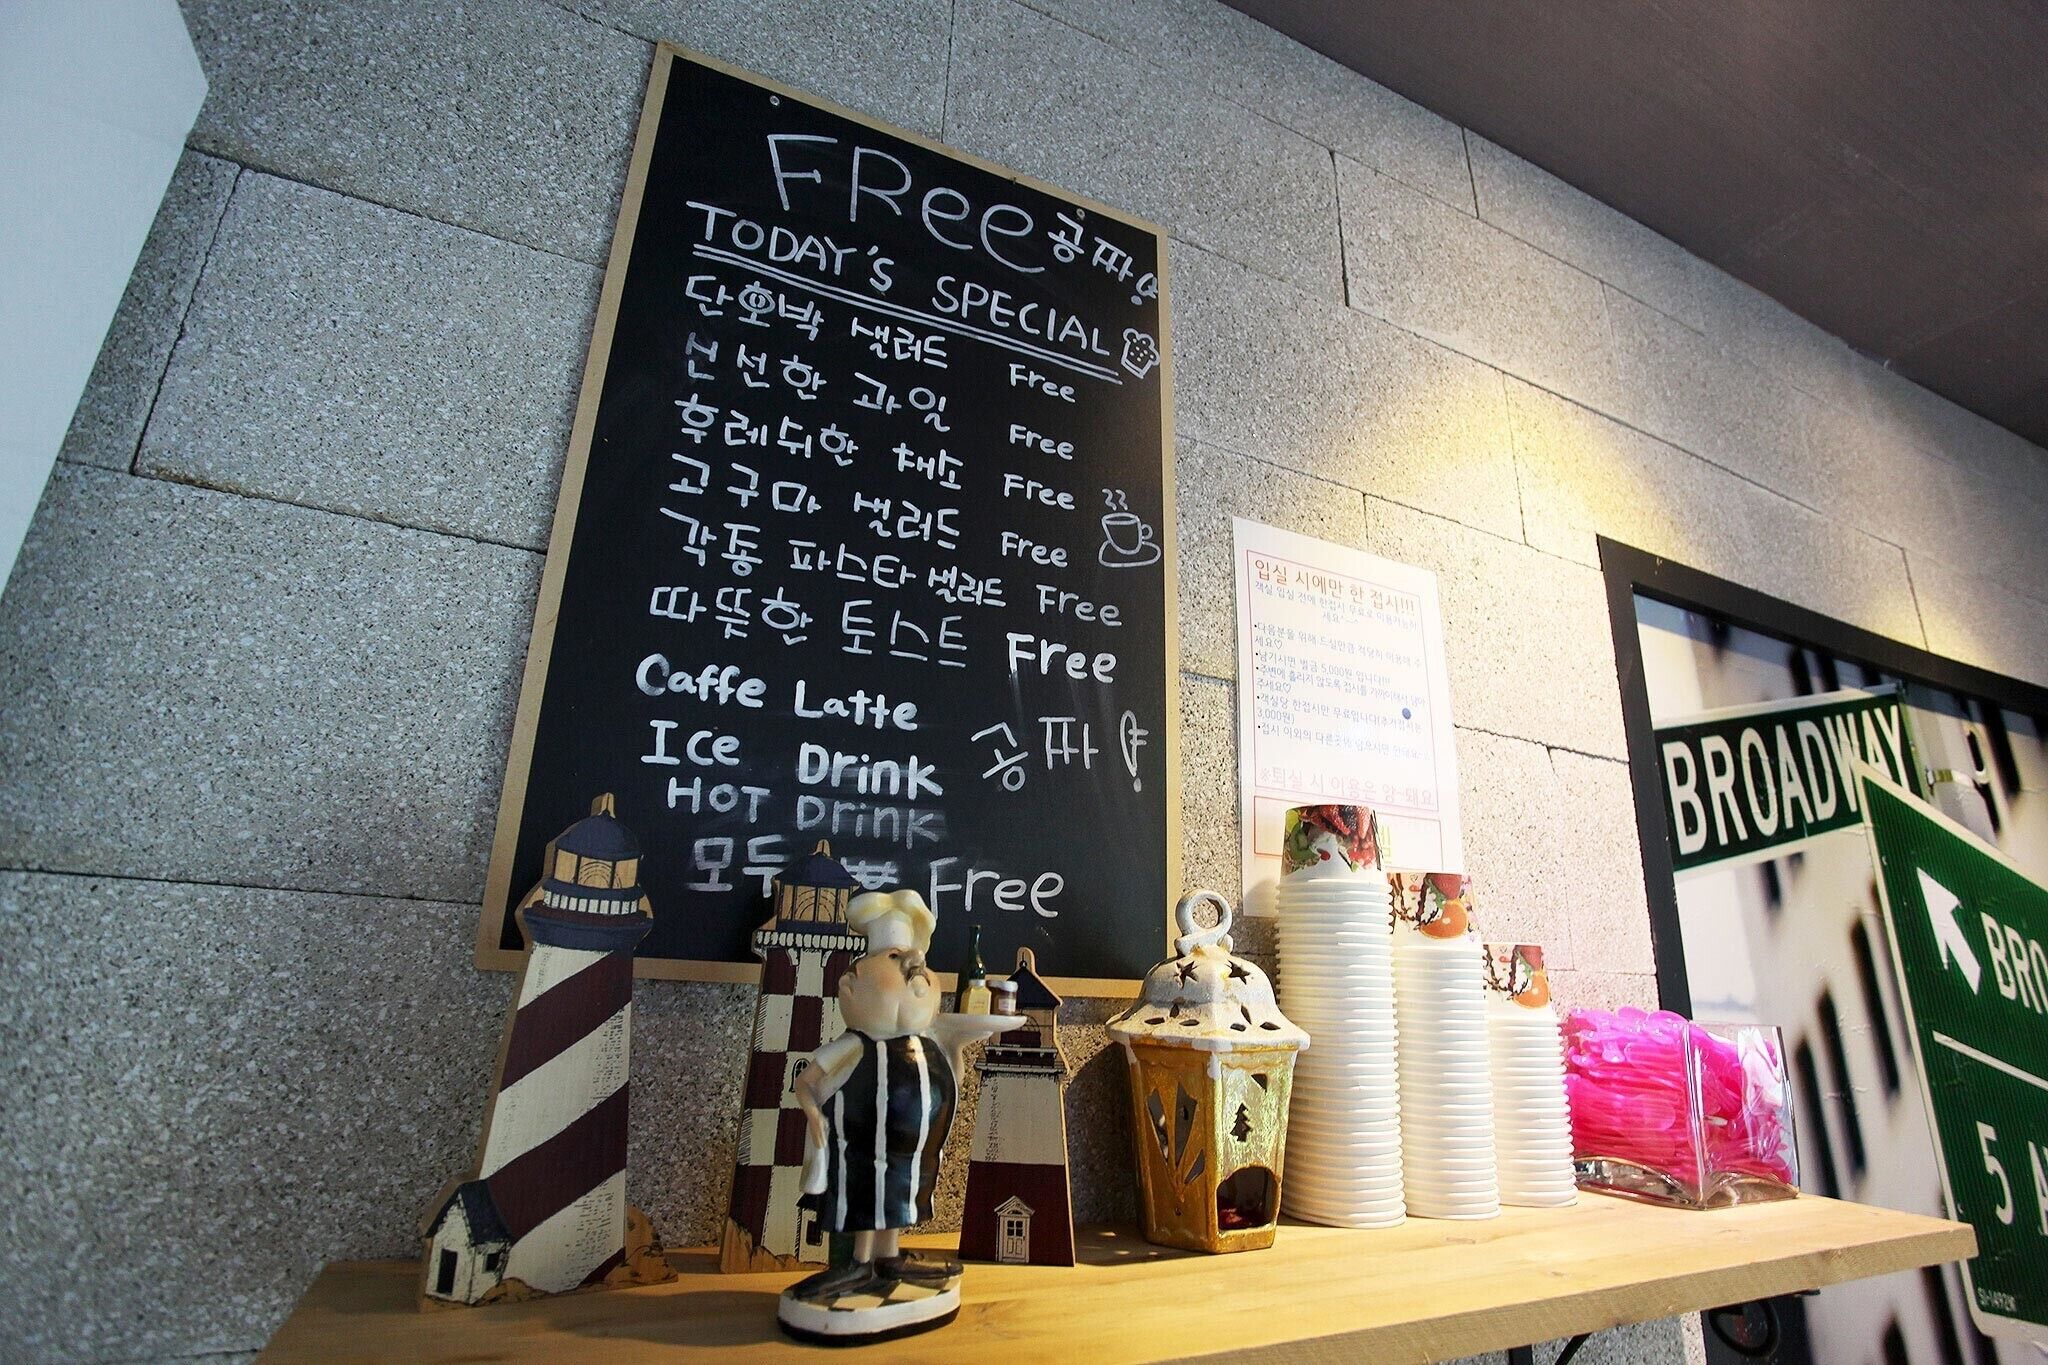 FRee 공짜!
TODAY'S SPECIAL
단호박 샐러드 Free
신선한 과일 Free
후레쉬한 채소 Free
고구마 샐러드 Free
각종 파스타 샐러드 Free
따뜻한 토스트 Free
Caffe Latte
Ice Drink 공짜!
HOT Drink
모두 Free
입실 시에만 한 접시!!!
객실 입실 전에 한접시 무료로 이용가능하
세요^~^
•다음분을 위해 드실만큼 적당히 이용해 주
세요♡
•남기시면 벌금 5,000원 입니다!!!
•주변에 흘리지 않도록 접시를 가까이해서 담아
주세요♡
•객실당 한접시만 무료입니다(추가접시는
3,000원)
•접시 이외의 다른곳에 담으시면 안돼요~
※퇴실 시 이용은 안 돼요
BROADWAY
BRO
5 A
SI-1492K